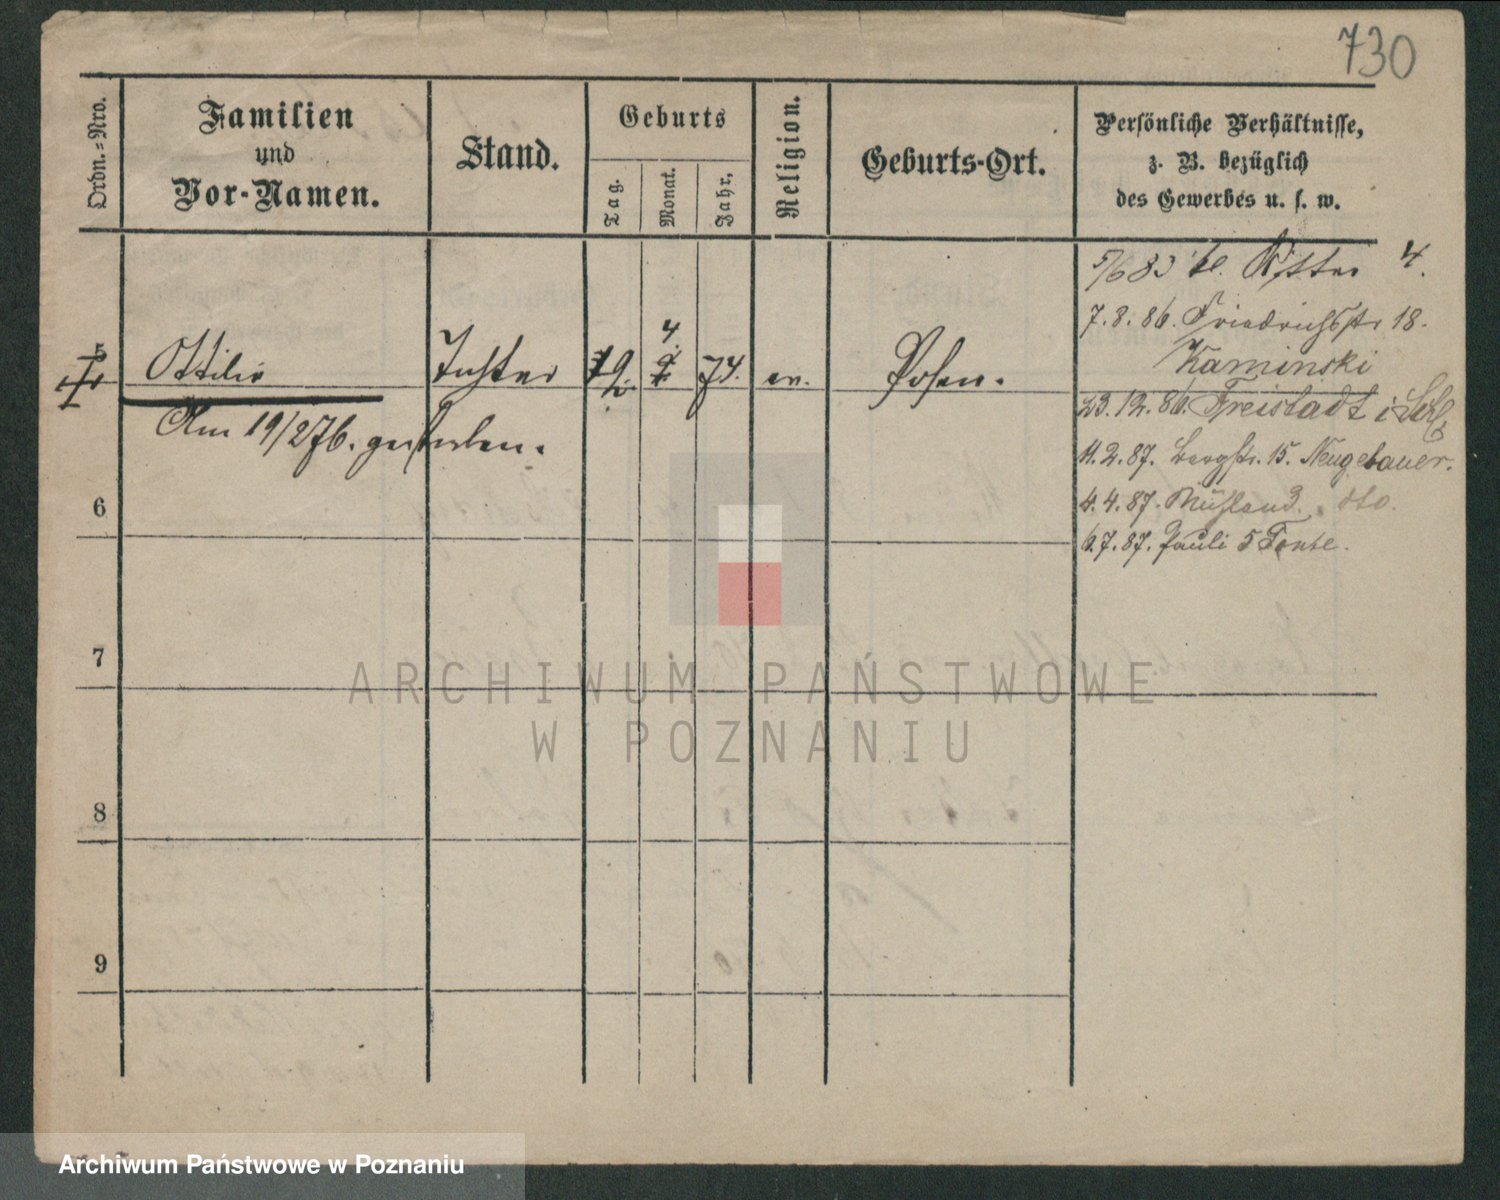 730
Ordn.=Nro.
Familien
und
Vor-Namen.
Stand.
Geburts
Tag.
Monat.
Jahr.
Religion.
Geburts-Ort.
Persönliche Verhältnisse,
z. B. bezüglich
des Gewerbes u. s. w.
5/6 83 kl. Ritter 4.
7. 8. 86. Friedrichsstr 18.
Kaminski
5 Ottilie Tochter 19 4. 74. ev. Posen.
23. 12. 86. Freistadt i Schl
Am 19/2 76. gestorben.
11. 2. 87. Bergstr. 15. Neugebauer.
6
4. 4. 87. dto.
6. 7. 87. Pauli 5
7
ARCHIWUM PAŃSTWOWE
W POZNANIU
8
9
Archiwum Państwowe w Poznaniu